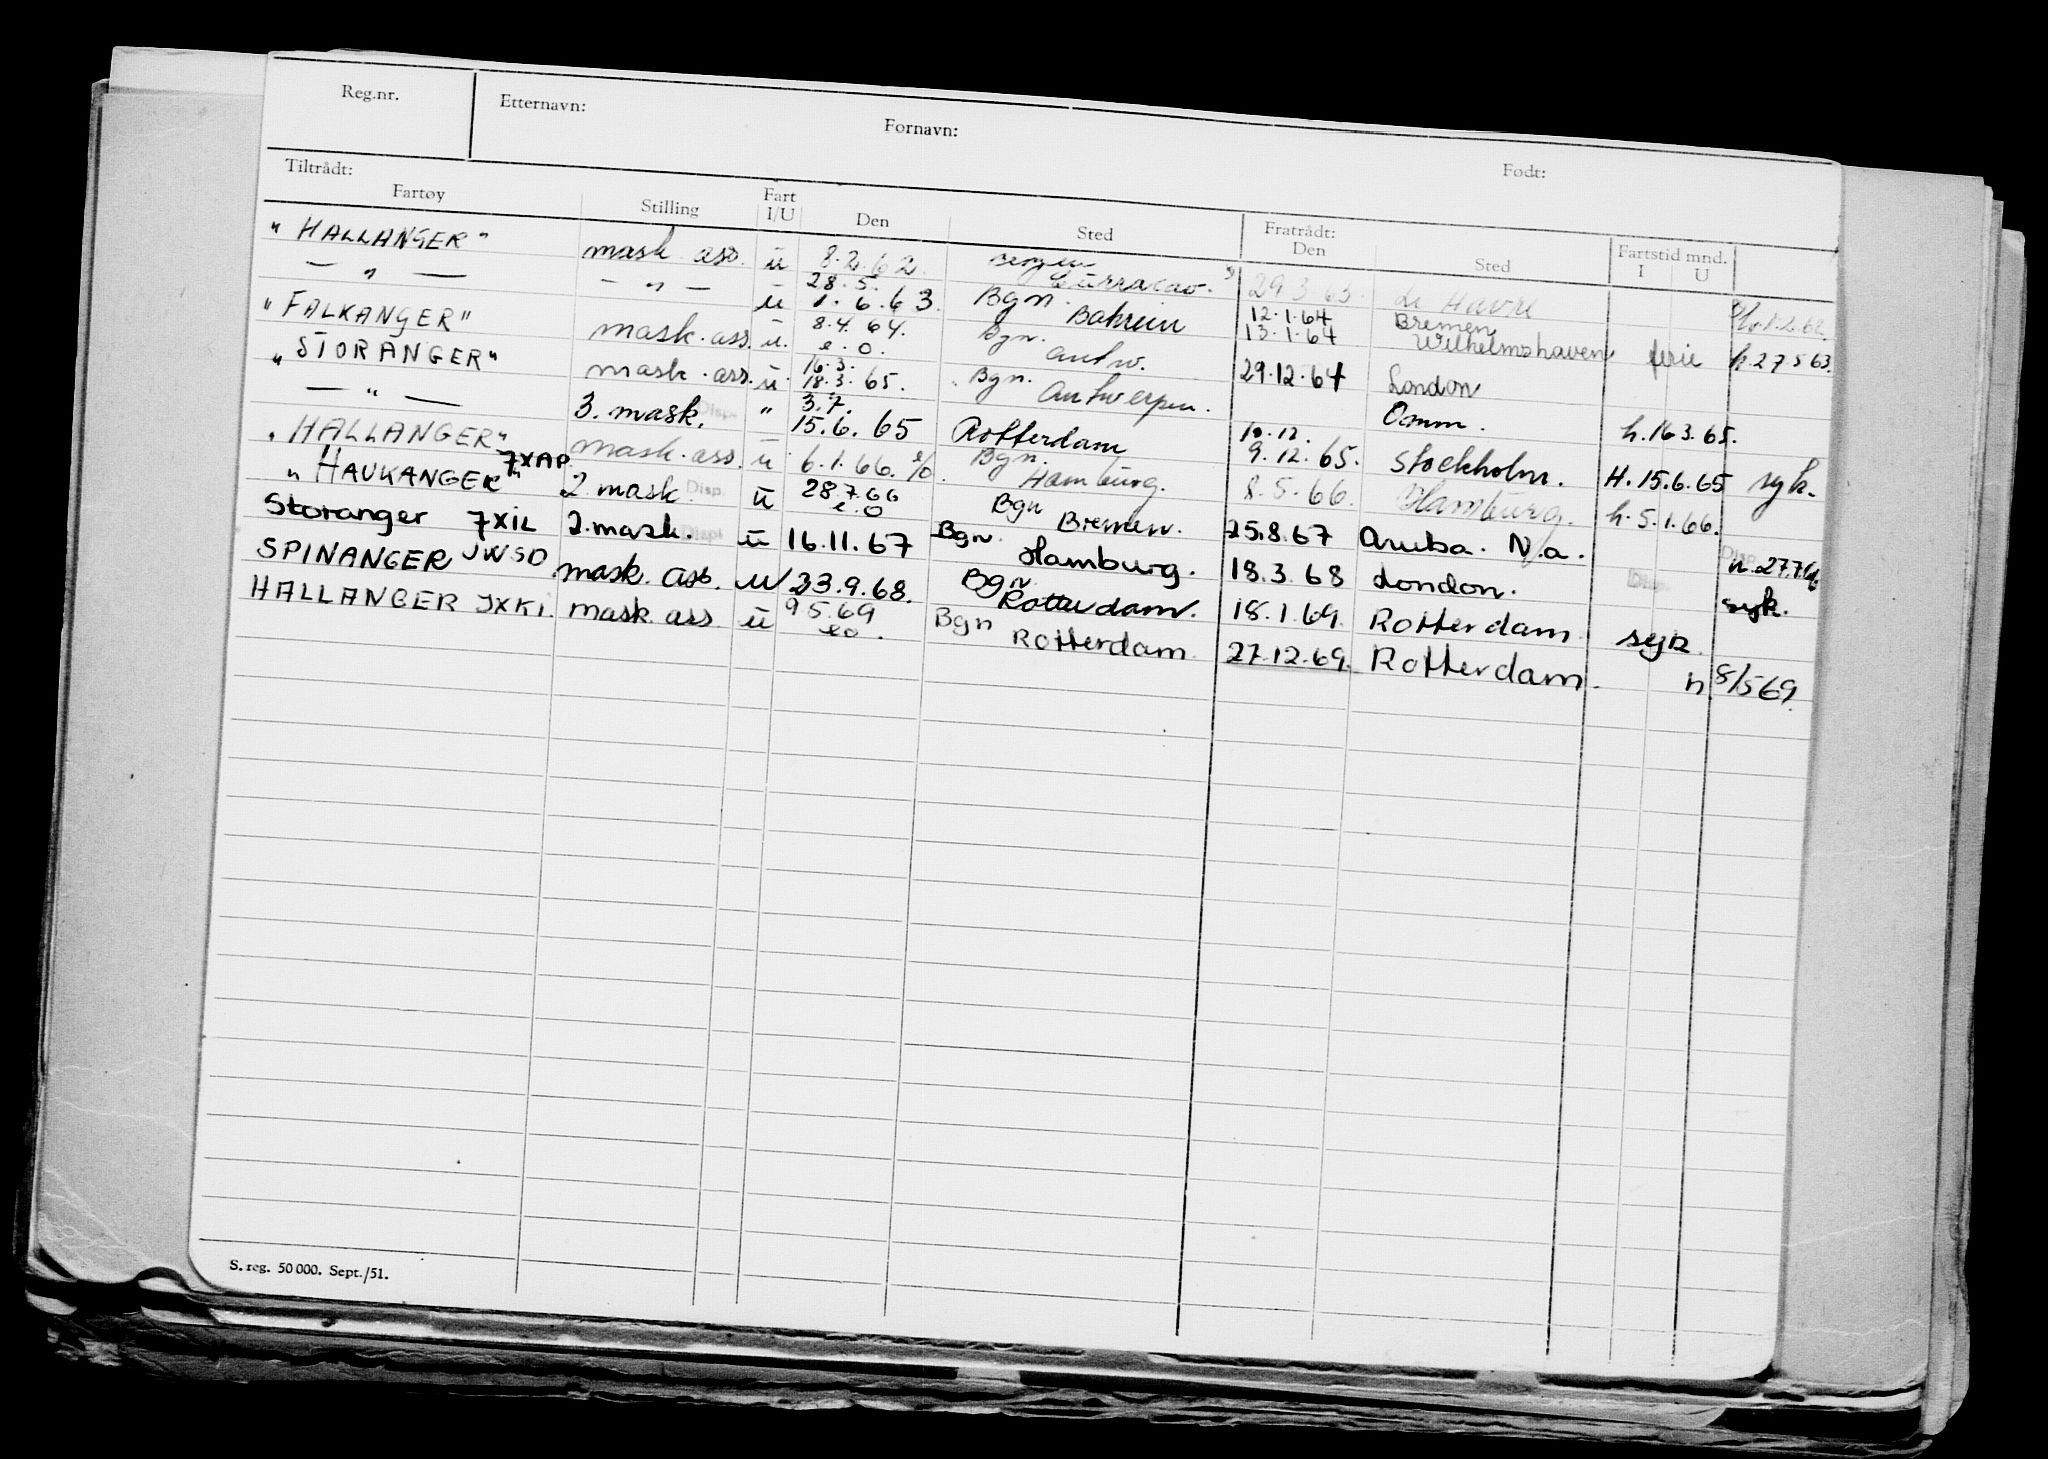 Reg.nr. Etternavn: Fornavn: Født:
Tiltrådt: Fratrådt: Fartstid mnd.
Fartøy Stilling Fart I/U Den Sted Den Sted I U
"HALLANGER" mask. ass. u 8.2.62. Bergen Curracao. 29.3.63. Le Havre
— " — — " — u 28.5. 1.6.63. Bgn. Bahrein 12.1.64 13.1.64 Bremen Wilhelmshaven ferie h.27.5.63.
"FALKANGER" mask. ass. u. 8.4.64. e.o. Bgn. Antw. 29.12.64 London
"STORANGER" mask. ass. u. 16.3. 18.3.65. Bgn. Antwerpen. Omm. h.16.3.65.
— " — 3. mask. Disp. " 3.7. 15.6.65 Rotterdam 10.12. 9.12.65. Stockholm. H.15.6.65 syk.
"HALLANGER" mask. ass. u 6.1.66. e/o. Bgn. Hamburg. 8.5.66. Hamburg. h.5.1.66.
"HAUKANGER" 7XAP 2 mask. Disp. u 28.7.66 e.o Bgn Bremen. 25.8.67 Aruba. N.a. Disp. h.27.7.66
Storanger 7XIL 2.mask. Disp. u 16.11.67 Bgn. Hamburg. 18.3.68 London. Disp. syk.
SPINANGER JWSD mask. ass. u 23.9.68. Bgn Rotterdam. 18.1.69. Rotterdam. syk.
HALLANGER JXKI. mask. ass. u 9.5.69 eo. Bgn Rotterdam 27.12.69. Rotterdam. h. 8/5 69.
S. reg. 50 000. Sept./51.